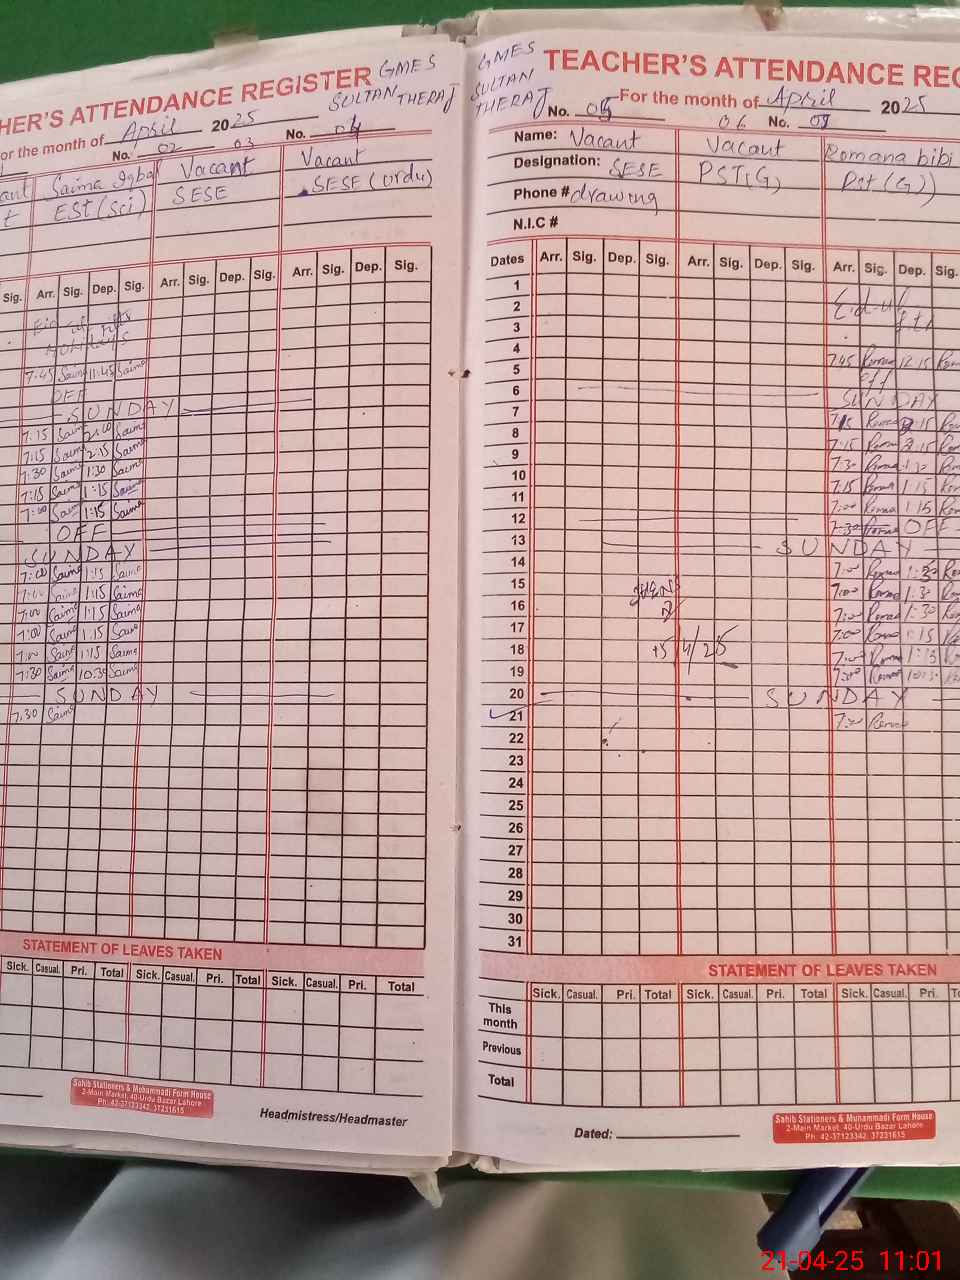 HER'S ATTENDANCE REGISTER GMES
SULTAN THERAJ
or the month of April 2025
No. 02 03 No. 04
ant Saima Iqbal Vacant Vacant
t EST (sci) SESE SESE (urdu)
Sig. Arr. Sig. Dep. Sig. Arr. Sig. Dep. Sig. Arr. Sig. Dep. Sig.
7:45 Saima 11:45 Saima
OFF
SUNDAY
7:15 Saima 2:00 Saima
7:15 Saima 2:15 Saima
7:30 Saima 1:30 Saima
7:15 Saima 1:15 Saima
7:00 Saima 1:15 Saima
OFF
SUNDAY
7:00 Saima 1:15 Saima
7:00 Saima 1:15 Saima
7:00 Saima 1:15 Saima
7:00 Saima 1:15 Saima
7:00 Saima 1:15 Saima
7:30 Saima 10:30 Saima
SUNDAY
7:30 Saima
STATEMENT OF LEAVES TAKEN
Sick. Casual. Pri. Total Sick. Casual. Pri. Total Sick. Casual. Pri. Total
Sahib Stationers & Mohammadi Form House
2-Main Market, 40-Urdu Bazar Lahore
Ph. 42-37123342, 37231615
Headmistress/Headmaster
GMES
SULTAN
THERAJ
TEACHER'S ATTENDANCE REG
For the month of April 2025
No. 05 06 No. 07
Name: Vacant Vacant Romana bibi
Designation: SESE PST(G) Pst (G)
Phone # drawing
N.I.C #
Dates Arr. Sig. Dep. Sig. Arr. Sig. Dep. Sig. Arr. Sig. Dep. Sig.
1
2 Eid-ul
3 fitr
4
5 7:45 Roman 12:15 Rom
6 SUNDAY
7 7:15 Roma 2:15 Ro
8 7:15 Roma 2:15 Ro
9 7:30 Roma
10 7:15 Roma 1:15 Rom
11 7:00 Roma 1:15 Rom
12 OFF
13 SUNDAY
14 7:00 Roma 1:30 Ro
15 7:00 Roma 1:30 Ro
16 7:00 Roma 1:30 Ro
17 7:00 Roma 1:15 Ro
18 15/4/25 7:00 Roma 1:15 R
19 7:30 Roma 10:30
20 SUNDAY
21 7:30 Roma
22
23
24
25
26
27
28
29
30
31
STATEMENT OF LEAVES TAKEN
Sick. Casual. Pri. Total Sick. Casual. Pri. Total Sick. Casual. Pri. To
This
month
Previous
Total
Dated:
Sahib Stationers & Muhammadi Form House
2-Main Market, 40-Urdu Bazar Lahore
Ph. 42-37123342, 37231615
21-04-25 11:01